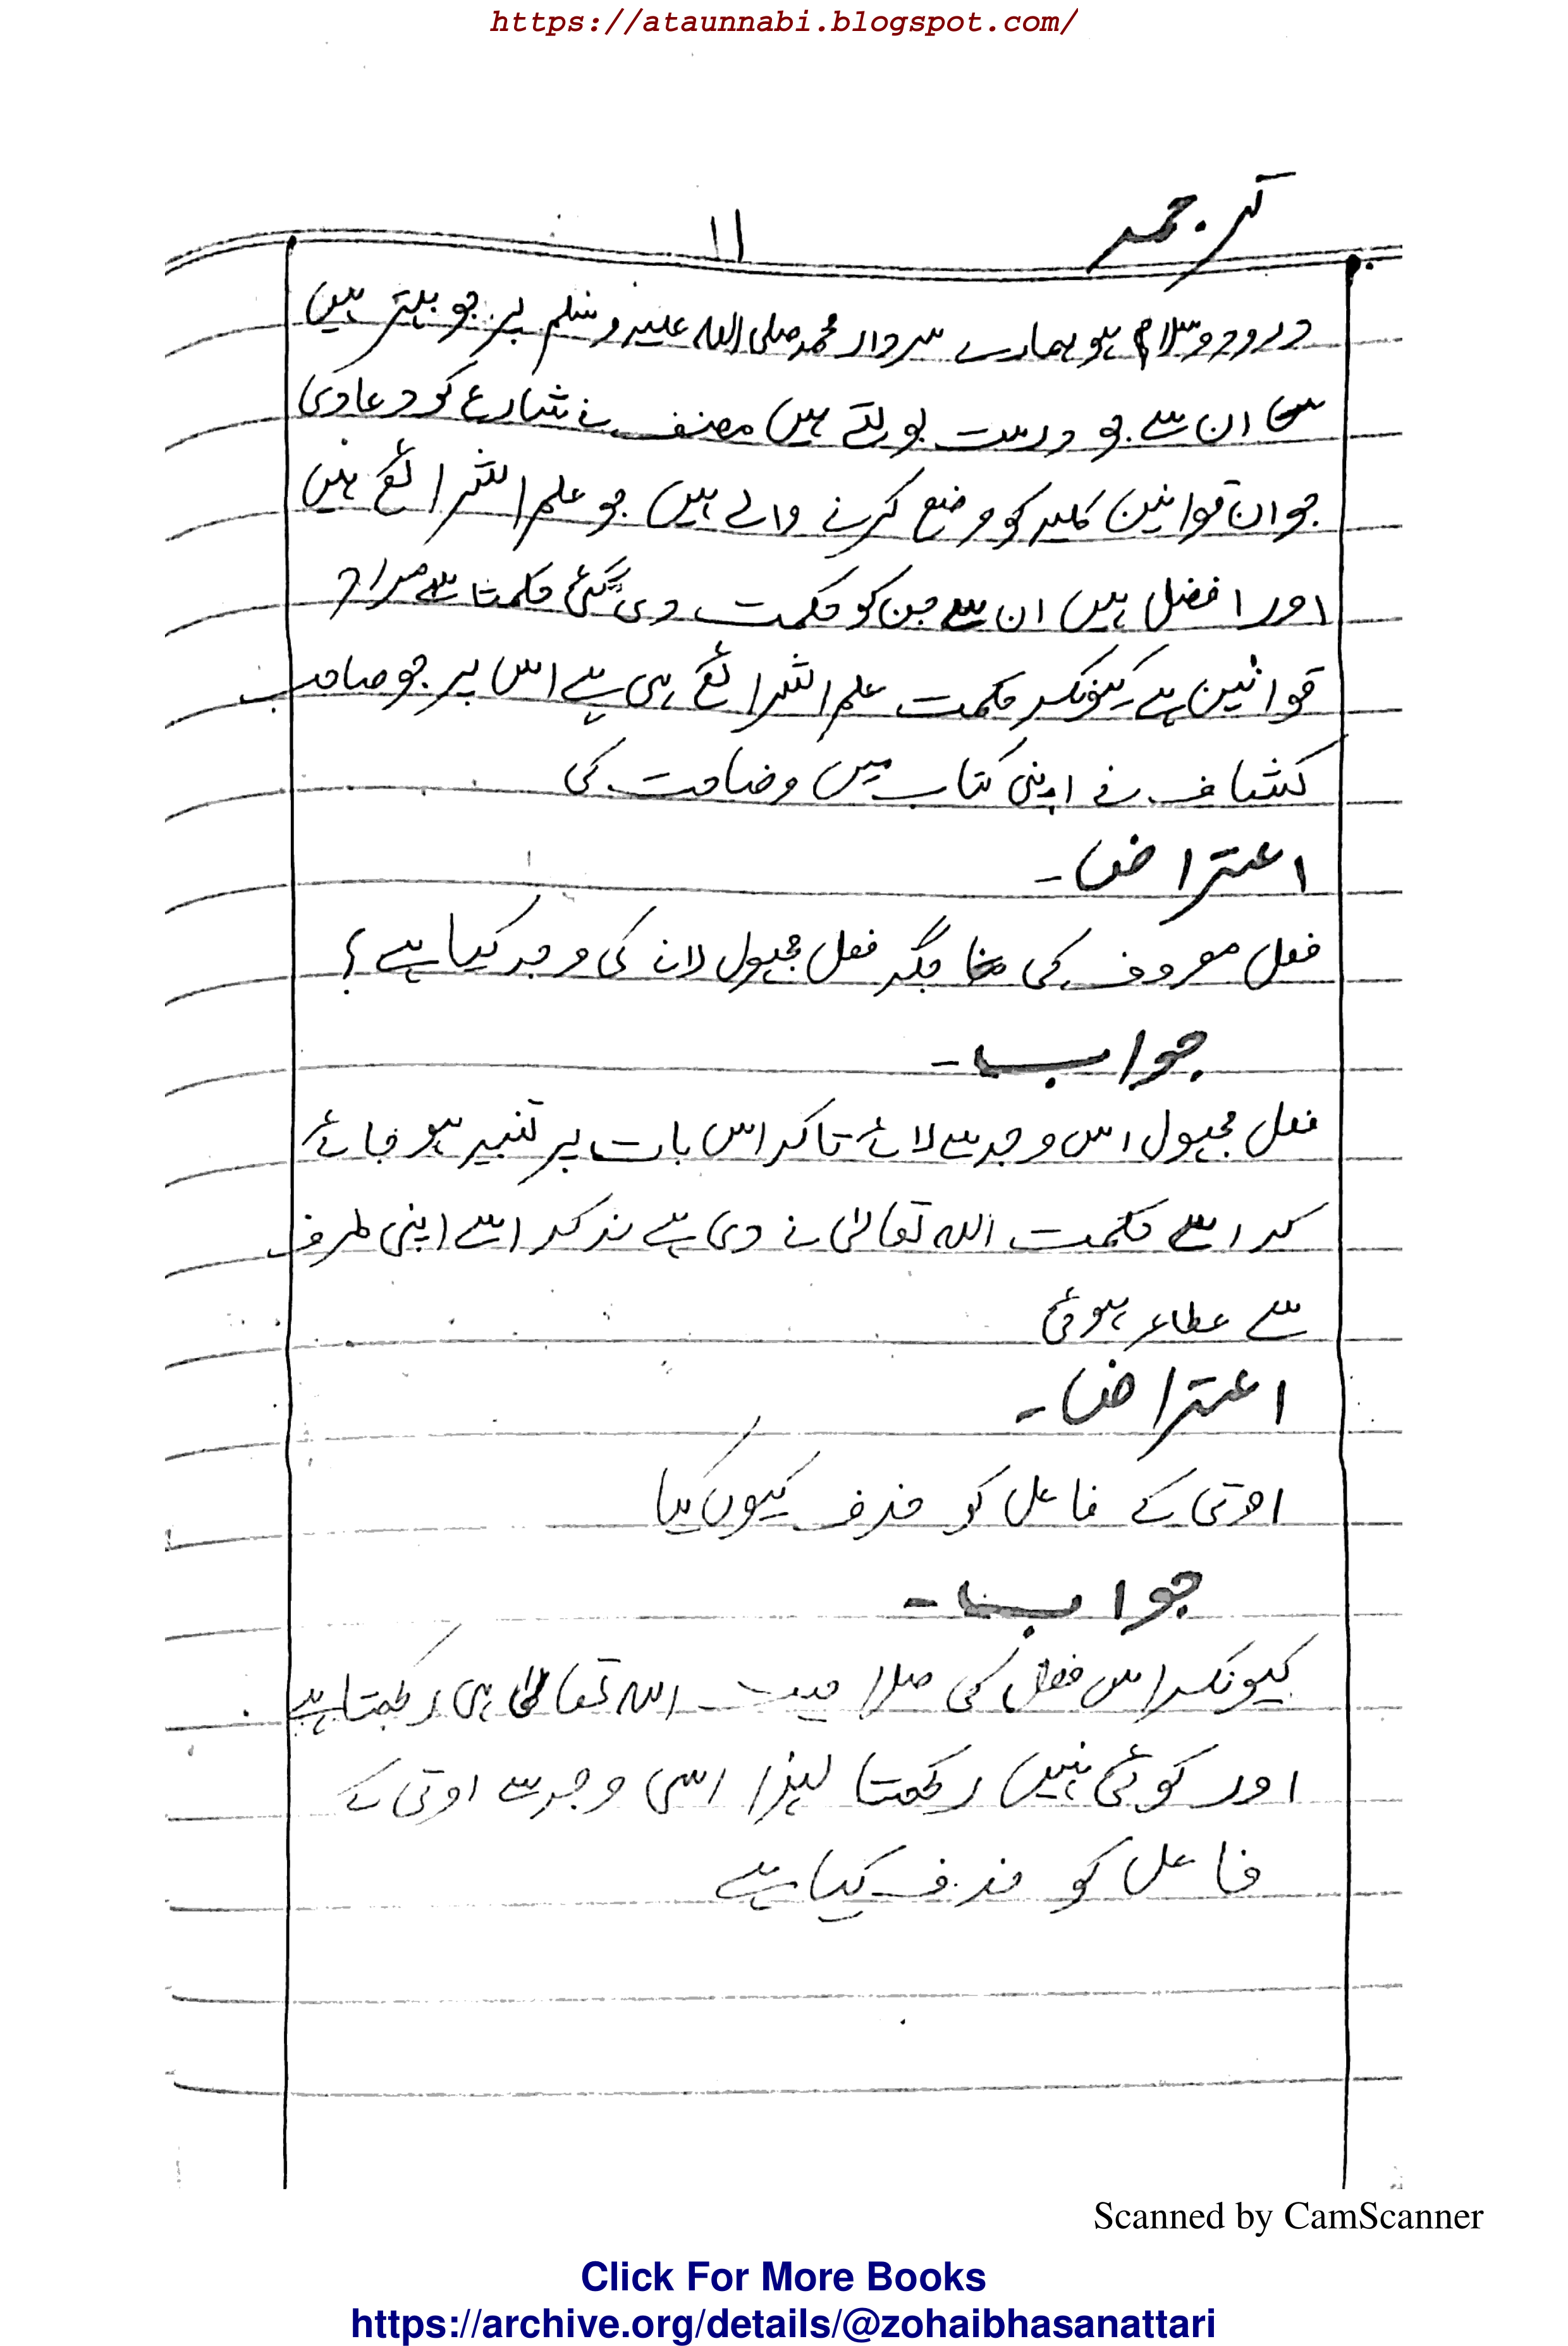 https://ataunnabi.blogspot.com/
ترجمہ
۱۱
درود وسلام ہو ہمارے سردار محمد صلی اللہ علیہ وسلم پر جو بہتر ہیں
ان سے جو درست بولتے ہیں مصنف نے شارع کو دعا دی
جو ان قوانین کلیہ کو وضع کرنے والے ہیں جو علم الشرائع ہیں
اور افضل ہیں ان سے جن کو حکمت دی گئی حکمت سے مراد
قوانین ہے کیونکہ حکمت علم الشرائع ہی ہے اس پر جو صاحب
کشاف نے اپنی کتاب میں وضاحت کی
اعتراض۔
فعل معروف کی جگہ فعل مجہول لانے کی وجہ کیا ہے؟
جواب۔
فعل مجہول اس وجہ سے لائے تاکہ اس بات پر تنبیہ ہو جائے
کہ اسے حکمت اللہ تعالیٰ نے دی ہے نہ کہ اسے اپنی طرف
سے عطاء ہوئی
اعتراض۔
اوتی کے فاعل کو حذف کیوں کیا
جواب۔
کیونکہ اس فعل کی صلاحیت اللہ تعالیٰ ہی رکھتا ہے
اور کوئی نہیں رکھتا لہذا اسی وجہ سے اوتی کے
فاعل کو حذف کیا ہے
Scanned by CamScanner
Click For More Books
https://archive.org/details/@zohaibhasanattari